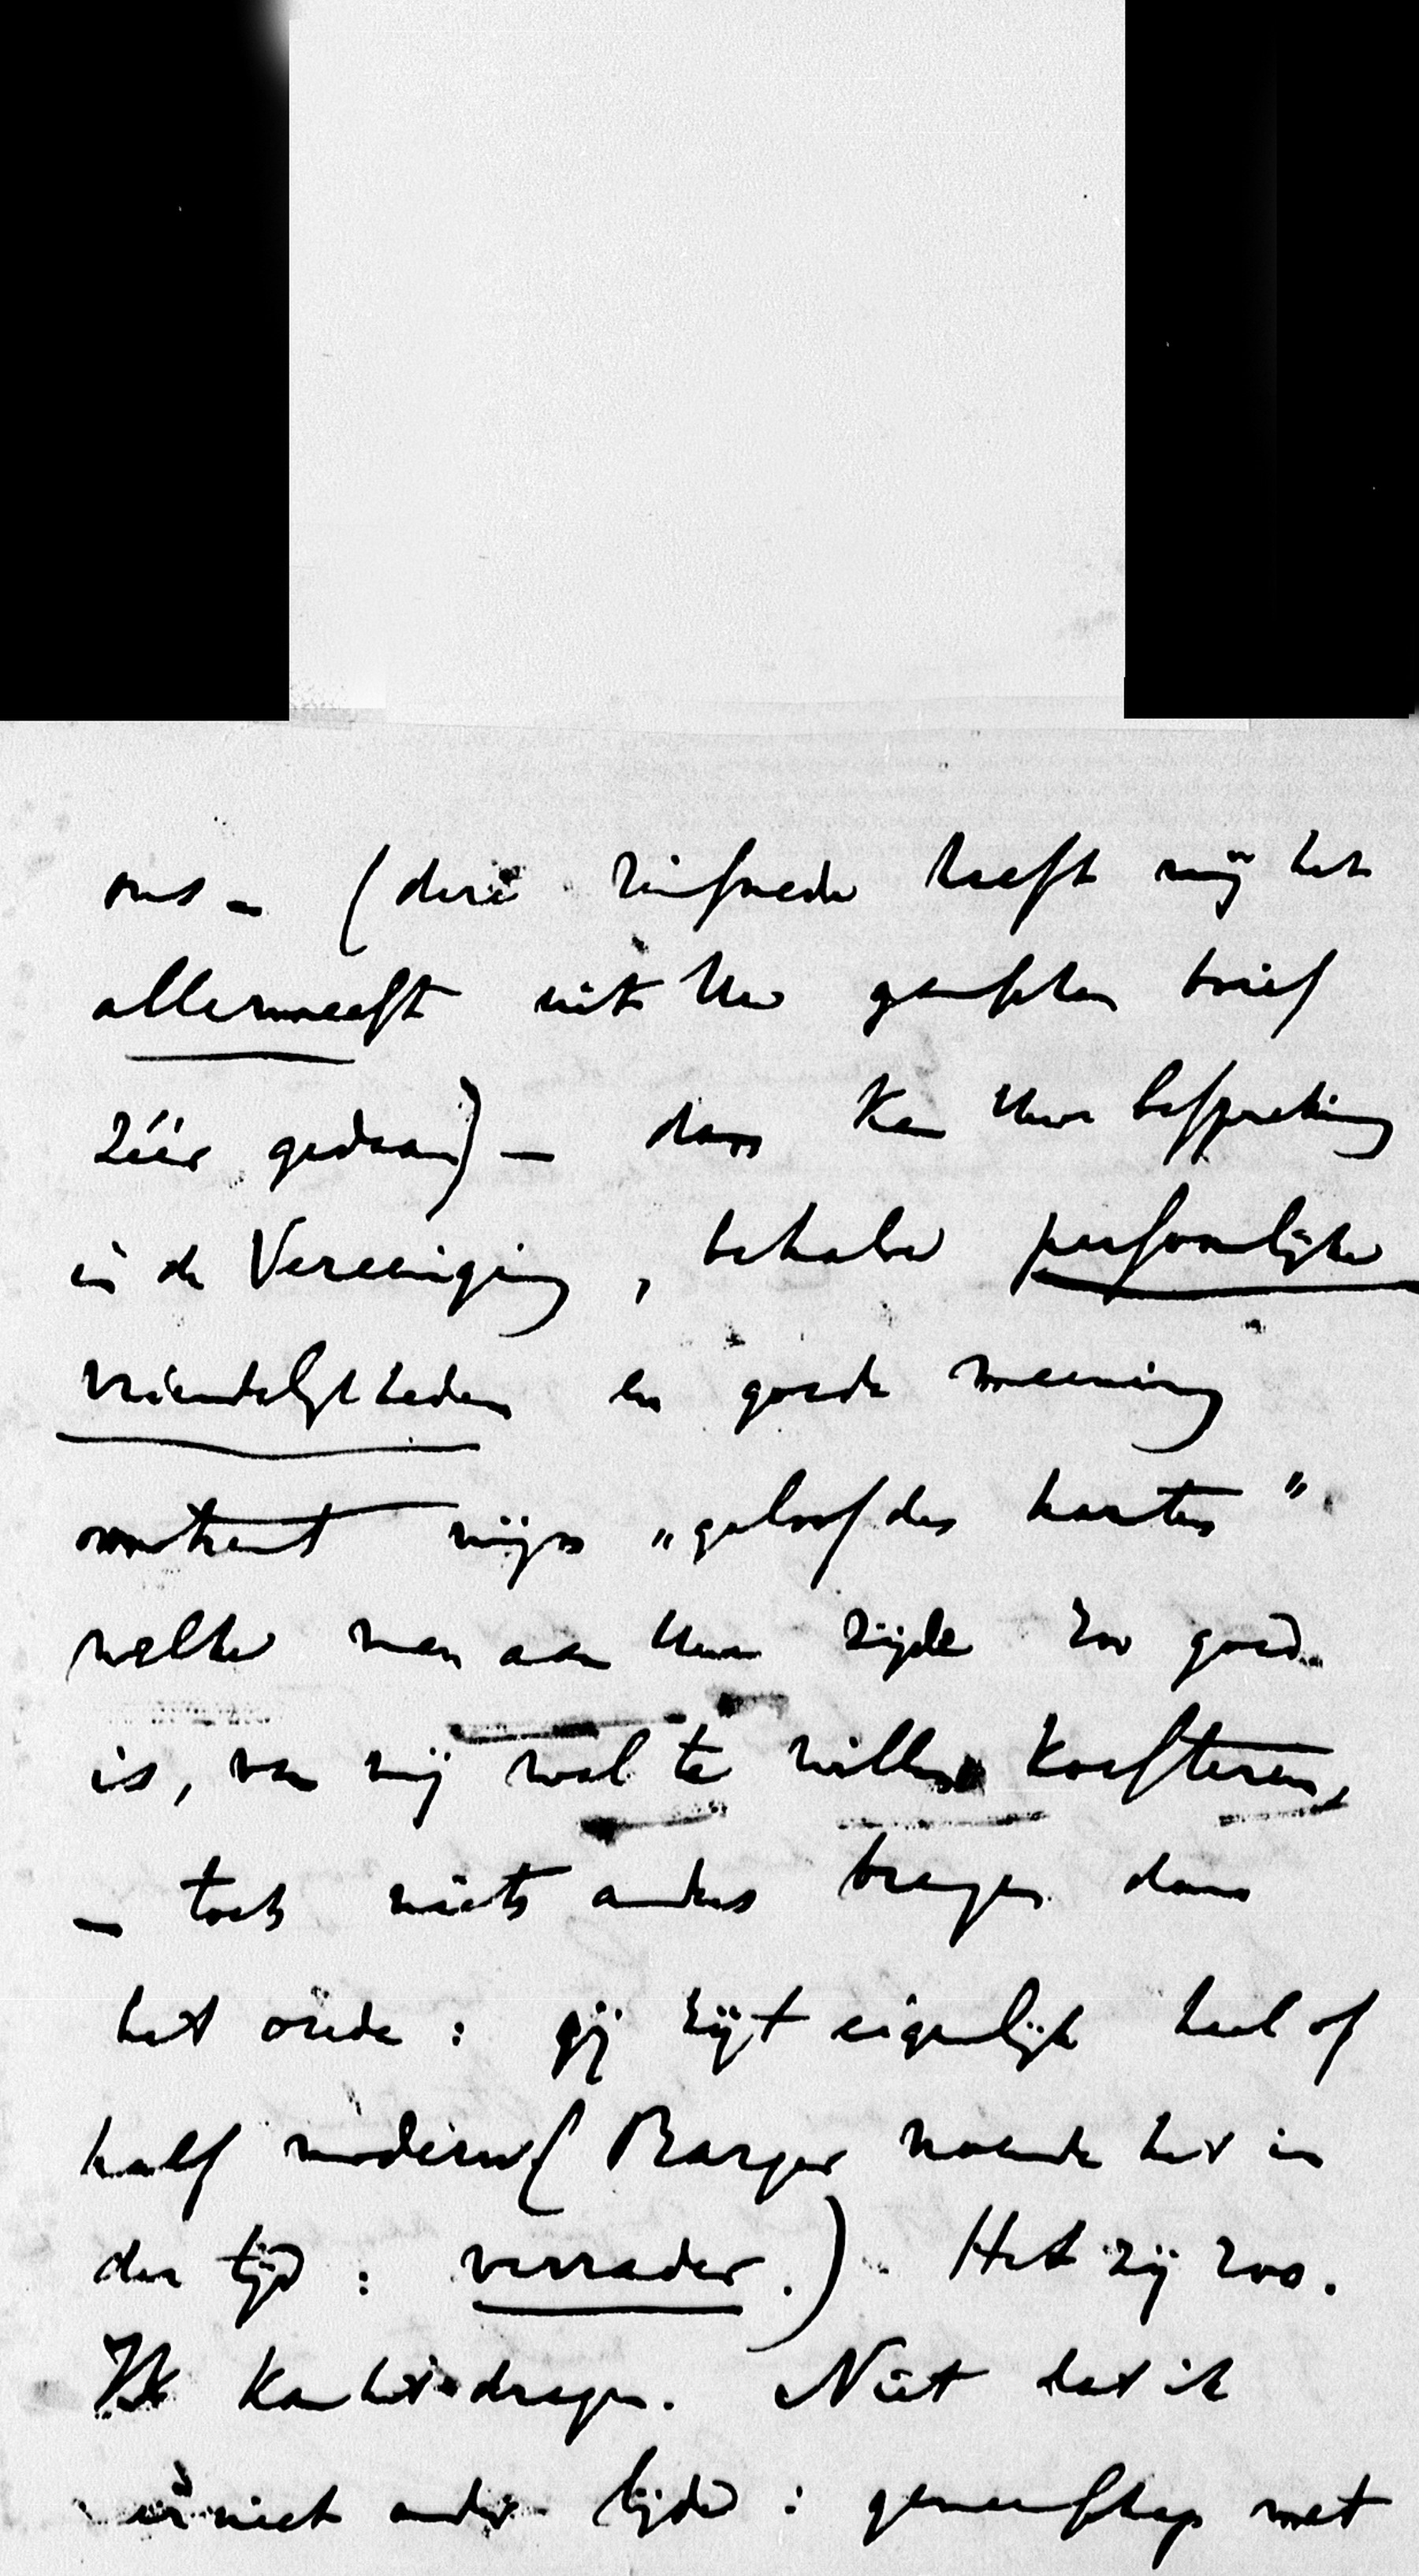 ons – (deze zinsnede heeft mij het
allermeest uit Uw ganschen brief
zéér gedaan) – dan kan Uwe bespreking
in de Vereeniging, behalve persoonlijke
vriendelijkheden en goede meening
omtrent mijn „geloof des harten"
welke men aan Uwe zijde zoo goed
is, van mij wel te willen koesteren,
– toch niets anders brengen dan
het oude : gij zijt eigenlijk heel of
half modern (Barger noemde het in
der tijd : verrader.) Het zij zoo.
Ik kan het dragen. Niet dat ik
er niet onder lijde : gemeenschap met